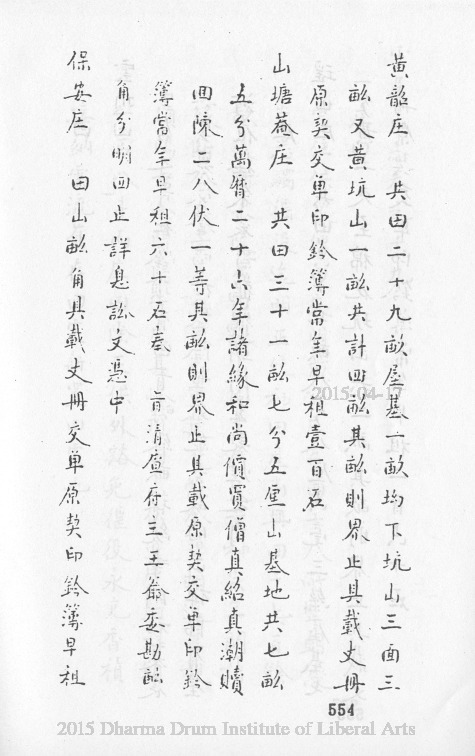 黃韶庄　共田二十九畝屋基一畝坳下坑山三面三
畝又黃坑山一畝共計四畝其畝則界止具載丈冊
原契交单印鈐簿當年早租壹百石
山塘菴庄　共田三十一畝七分五厘山基地共七畝
五分萬曆二十六年諸緣和尚價買僧真紹真潮贖
回陳二八伏一等其畝則界止具載原契交单印鈐
簿當年早租六十石奉　旨清查府三王爺委勘畝
角分明四止詳息訟文憑中
保安庄　田山畝角具載丈冊交单原契印鈐簿早租
554
2015-04-17
2015 Dharma Drum Institute of Liberal Arts